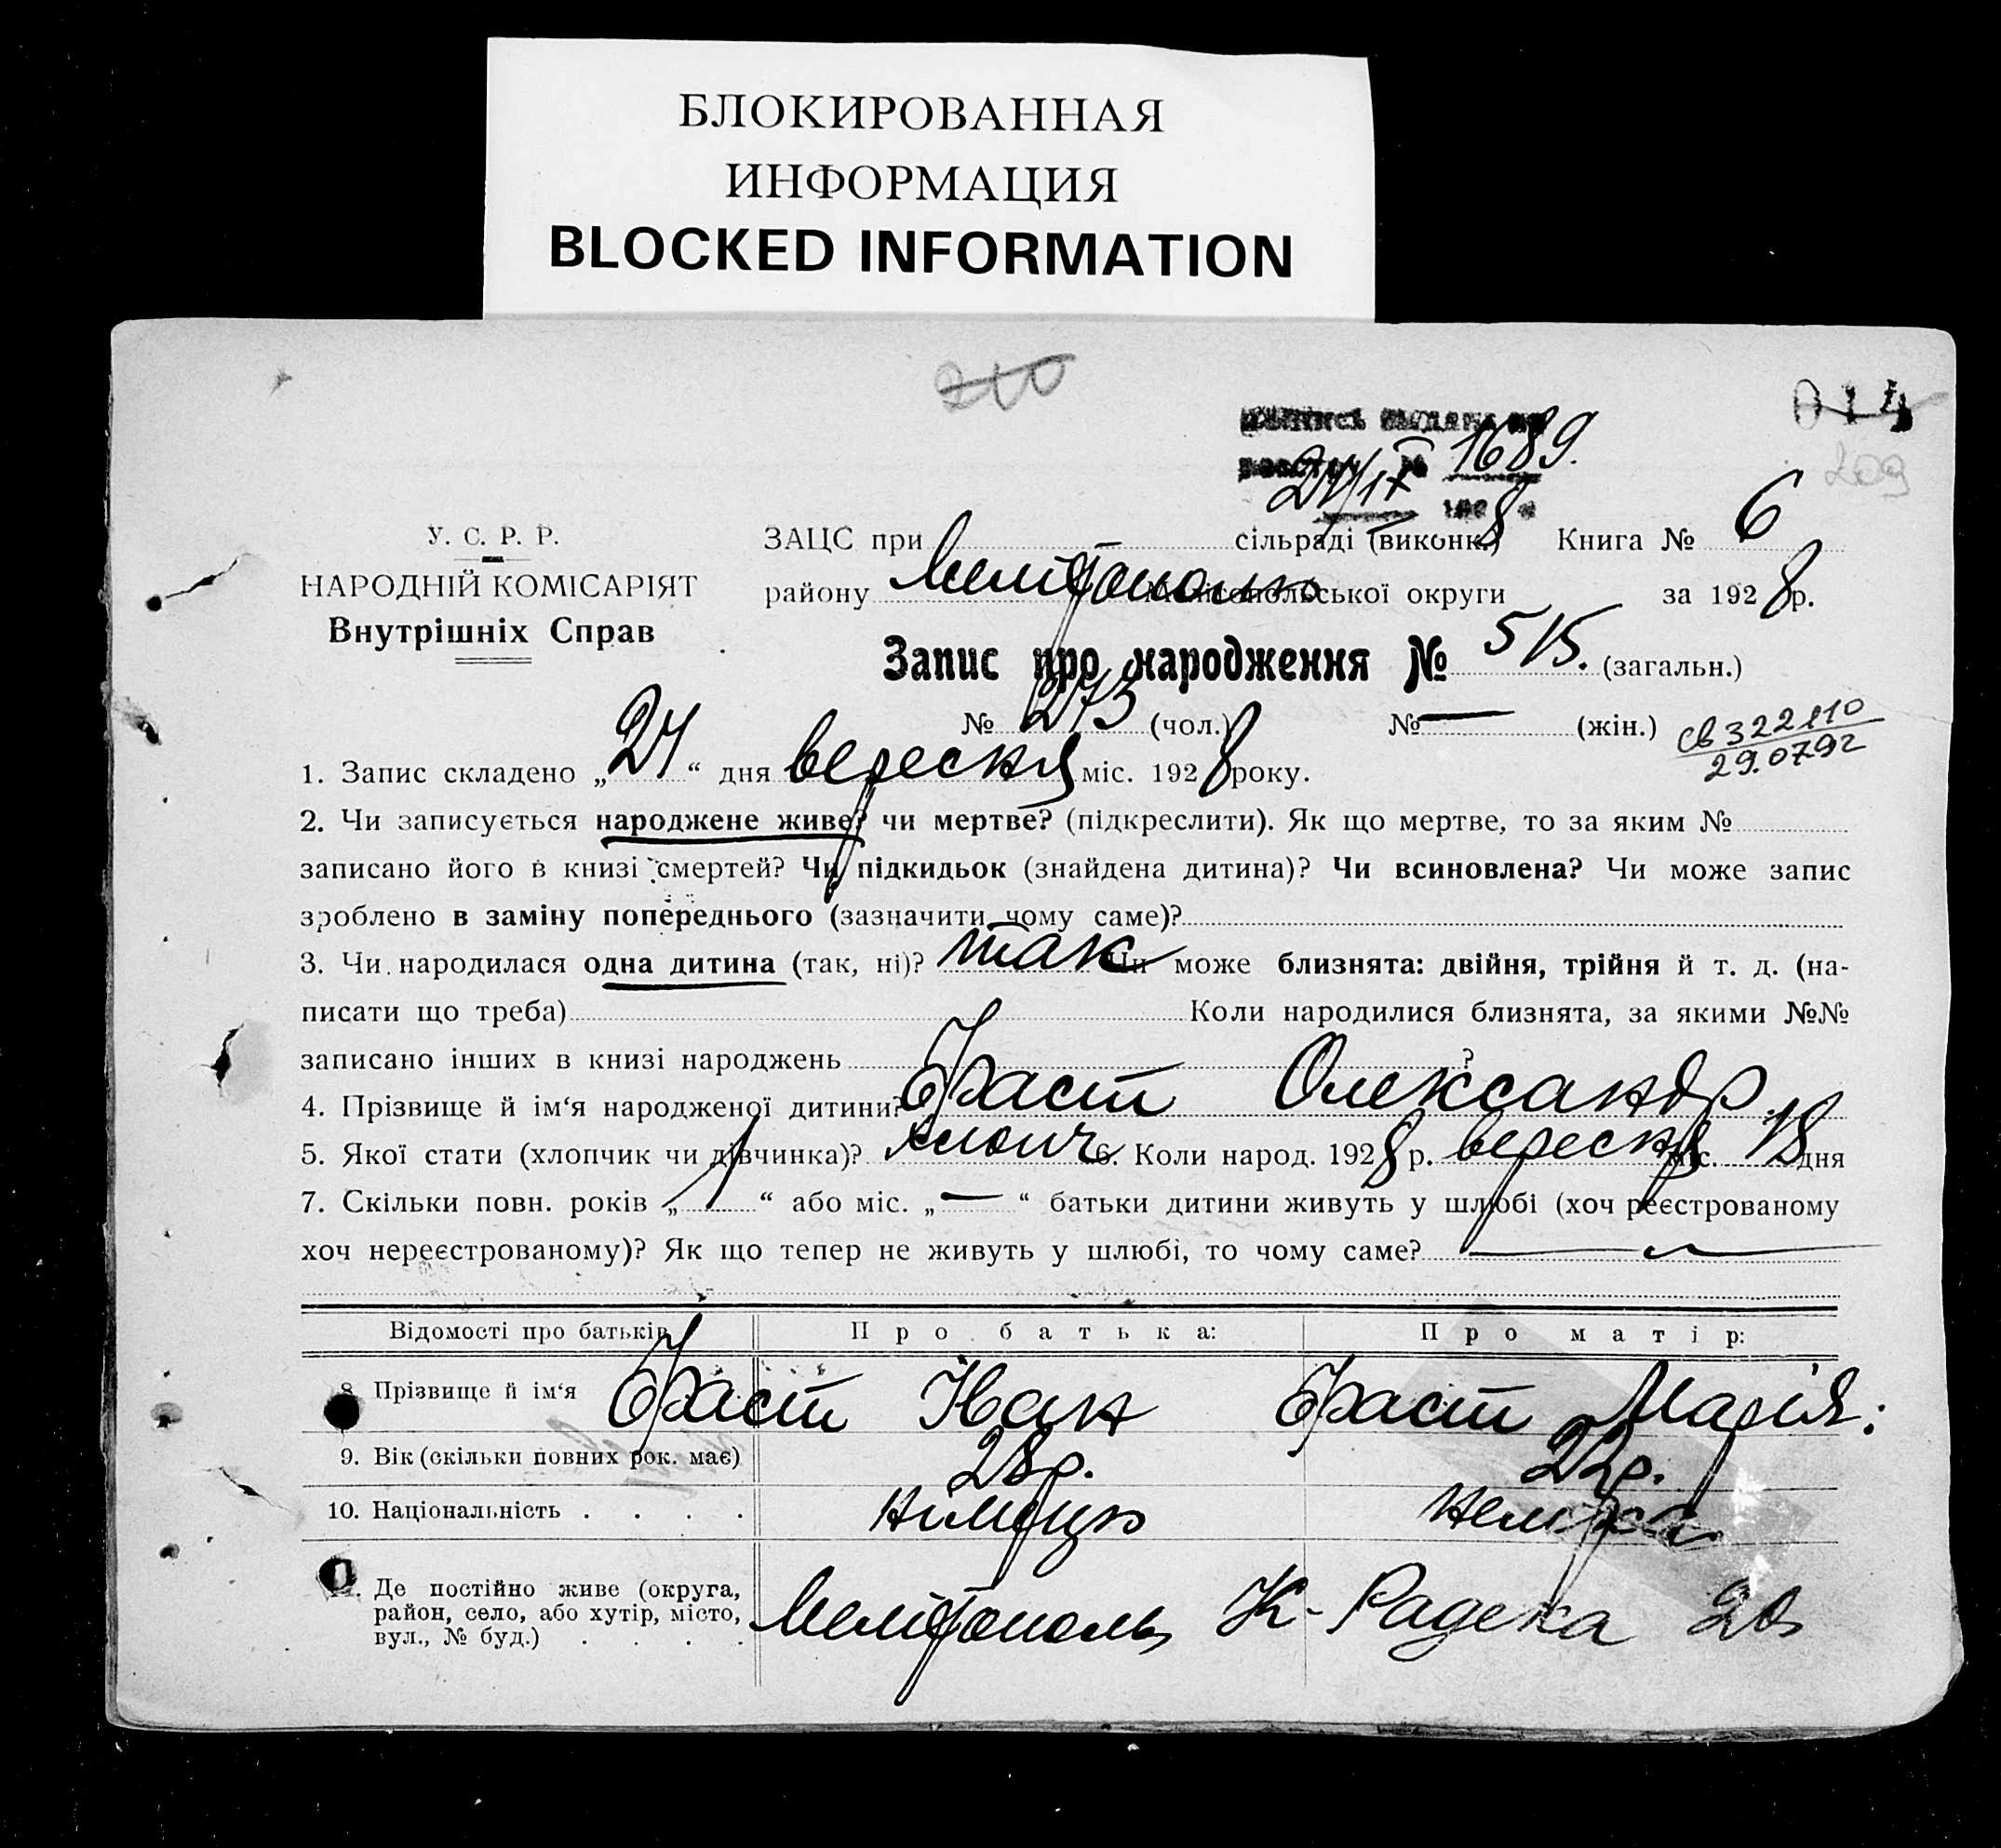 БЛОКИРОВАННАЯ
ИНФОРМАЦИЯ
BLOCKED INFORMATION
210
014
1689.
209
24/IX 8
У. С. Р. Р.
НАРОДНІЙ КОМІСАРІЯТ
Внутрішніх Справ
ЗАЦС при сільраді (виконк.) Книга № 6
району Мелітопольсько округи за 1928 р.
Запис про народження № 515. (загальн.)
№ 273 (чол.) № — (жін.)
св 322110
29.0792
1. Запис складено „24“ дня вересня міс. 1928 року.
2. Чи записується народжене живе? чи мертве? (підкреслити). Як що мертве, то за яким №
записано його в книзі смертей? Чи підкидьок (знайдена дитина)? Чи всиновлена? Чи може запис
зроблено в заміну попереднього (зазначити чому саме)?
3. Чи народилася одна дитина (так, ні)? так Чи може близнята: двійня, трійня й т. д. (на-
писати що треба) Коли народилися близнята, за якими №№
записано інших в книзі народжень ?
4. Прізвище й ім‘я народженої дитини? Фаст Олександр
5. Якої стати (хлопчик чи дівчинка)? хлопч 6. Коли народ. 1928 р. вересня міс. 18 дня
7. Скільки повн. років „1“ або міс. „—“ батьки дитини живуть у шлюбі (хоч реєстрованому
хоч нереєстрованому)? Як що тепер не живуть у шлюбі, то чому саме?
Відомості про батьків Про батька: Про матір:
8. Прізвище й ім‘я Фаст Іван Фаст Марія:
9. Вік (скільки повних рок. має) 28р. 22р.
10. Національність . . . . німець немка
11. Де постійно живе (округа,
район, село, або хутір, місто,
вул., № буд.) . . . . Мелітополь К-Радека 20